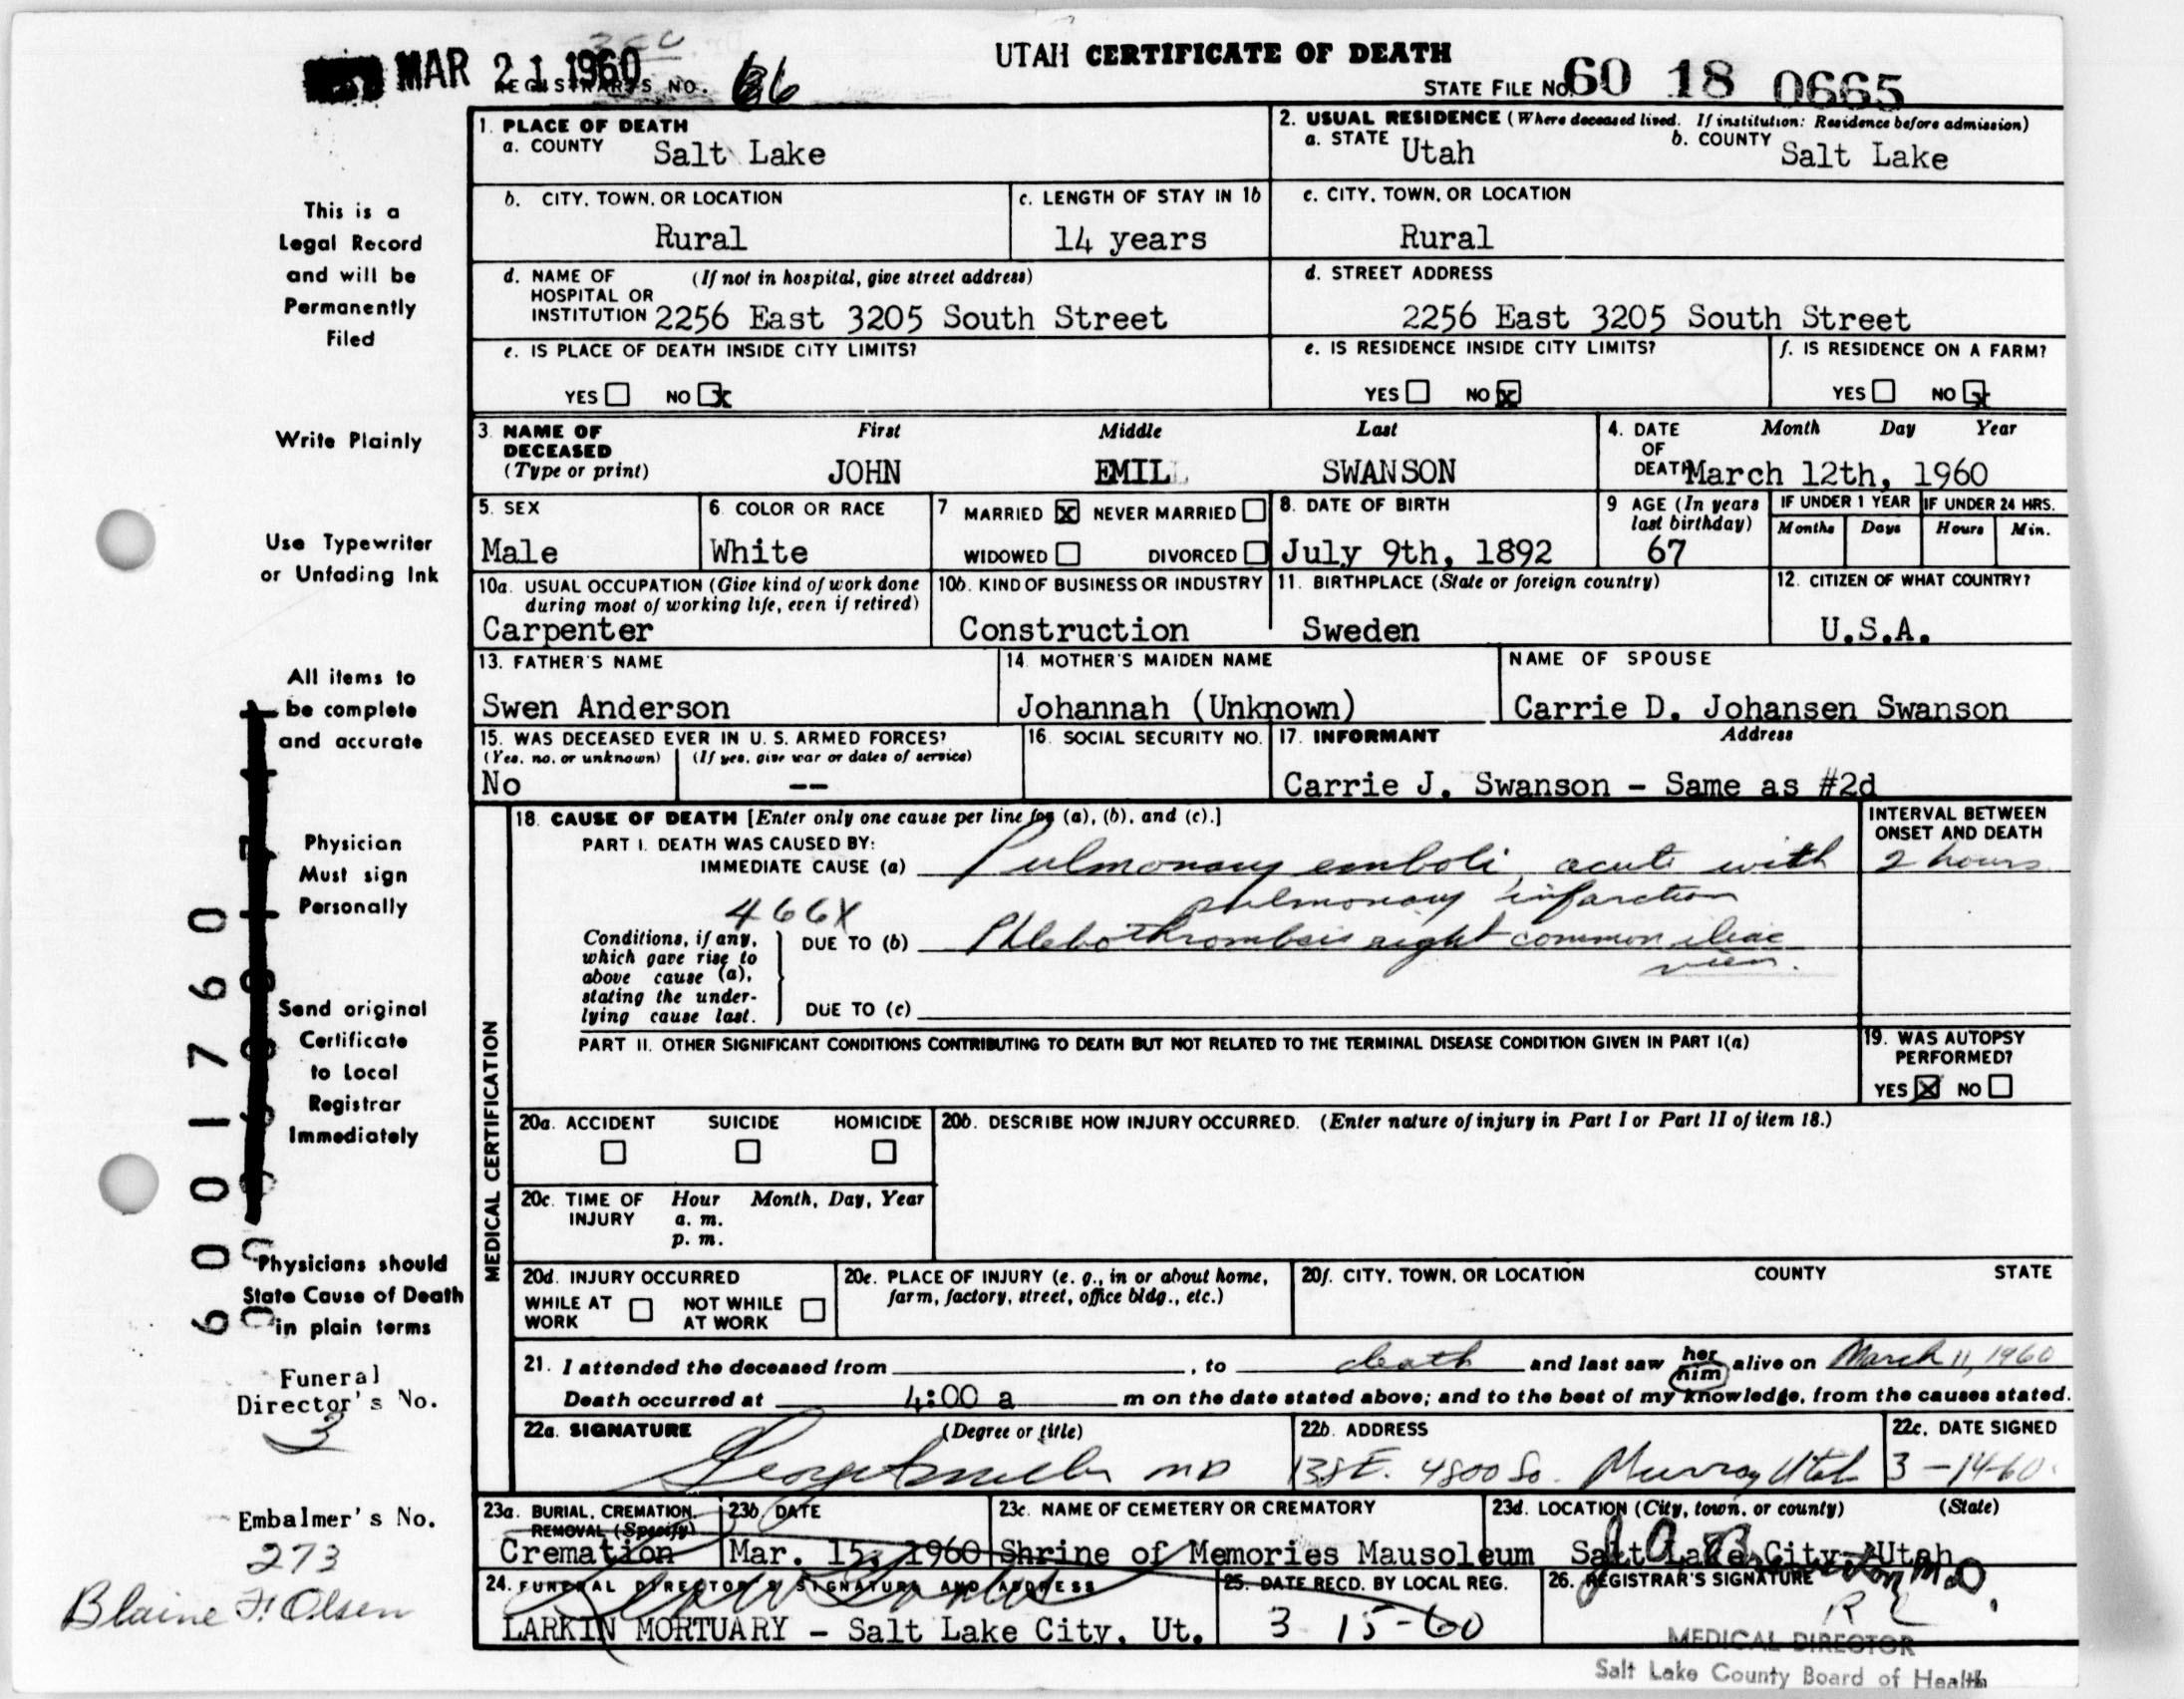 MAR 21 1960
REGISTRAR'S NO. 66
UTAH CERTIFICATE OF DEATH
STATE FILE NO. 60 18 0665
This is a
Legal Record
and will be
Permanently
Filed
Write Plainly
Use Typewriter
or Unfading Ink
All items to
be complete
and accurate
Physician
Must sign
Personally
Send original
Certificate
to Local
Registrar
Immediately
Physicians should
State Cause of Death
in plain terms
Funeral
Director's No.
3
Embalmer's No.
273
Blaine F. Olsen
6001760
1. PLACE OF DEATH
a. COUNTY Salt Lake
2. USUAL RESIDENCE (Where deceased lived. If institution: Residence before admission)
a. STATE Utah b. COUNTY Salt Lake
b. CITY, TOWN, OR LOCATION
Rural
c. LENGTH OF STAY IN 1b
14 years
c. CITY, TOWN, OR LOCATION
Rural
d. NAME OF (If not in hospital, give street address)
HOSPITAL OR
INSTITUTION 2256 East 3205 South Street
d. STREET ADDRESS
2256 East 3205 South Street
e. IS PLACE OF DEATH INSIDE CITY LIMITS?
YES NO x
e. IS RESIDENCE INSIDE CITY LIMITS?
YES NO x
f. IS RESIDENCE ON A FARM?
YES NO x
3. NAME OF DECEASED (Type or print)
First Middle Last
JOHN EMIL SWANSON
4. DATE OF DEATH Month Day Year
March 12th, 1960
5. SEX
Male
6. COLOR OR RACE
White
7 MARRIED x NEVER MARRIED
WIDOWED DIVORCED
8. DATE OF BIRTH
July 9th, 1892
9 AGE (In years last birthday)
67
IF UNDER 1 YEAR
Months Days
IF UNDER 24 HRS.
Hours Min.
10a. USUAL OCCUPATION (Give kind of work done
during most of working life, even if retired)
Carpenter
10b. KIND OF BUSINESS OR INDUSTRY
Construction
11. BIRTHPLACE (State or foreign country)
Sweden
12. CITIZEN OF WHAT COUNTRY?
U.S.A.
13. FATHER'S NAME
Swen Anderson
14. MOTHER'S MAIDEN NAME
Johannah (Unknown)
NAME OF SPOUSE
Carrie D. Johansen Swanson
15. WAS DECEASED EVER IN U. S. ARMED FORCES?
(Yes, no, or unknown) (If yes, give war or dates of service)
No --
16. SOCIAL SECURITY NO.
17. INFORMANT Address
Carrie J. Swanson - Same as #2d
MEDICAL CERTIFICATION
18. CAUSE OF DEATH [Enter only one cause per line for (a), (b), and (c).]
INTERVAL BETWEEN
ONSET AND DEATH
PART I. DEATH WAS CAUSED BY:
IMMEDIATE CAUSE (a) Pulmonary emboli, acute with 2 hours
pulmonary infarction
466X
Conditions, if any,
which gave rise to
above cause (a),
stating the under-
lying cause last.
DUE TO (b) Phlebothrombosis right common iliac
vein.
DUE TO (c)
PART II. OTHER SIGNIFICANT CONDITIONS CONTRIBUTING TO DEATH BUT NOT RELATED TO THE TERMINAL DISEASE CONDITION GIVEN IN PART I(a)
19. WAS AUTOPSY
PERFORMED?
YES x NO
20a. ACCIDENT SUICIDE HOMICIDE
20b. DESCRIBE HOW INJURY OCCURRED. (Enter nature of injury in Part I or Part II of item 18.)
20c. TIME OF INJURY Hour Month, Day, Year
a. m.
p. m.
20d. INJURY OCCURRED
WHILE AT WORK NOT WHILE AT WORK
20e. PLACE OF INJURY (e. g., in or about home,
farm, factory, street, office bldg., etc.)
20f. CITY, TOWN, OR LOCATION COUNTY STATE
21. I attended the deceased from , to death and last saw her him alive on March 11, 1960
Death occurred at 4:00 a m on the date stated above; and to the best of my knowledge, from the causes stated.
22a. SIGNATURE (Degree or title)
MD
22b. ADDRESS
138 E. 4800 So. Murray Utah
22c. DATE SIGNED
3-14-60
23a. BURIAL, CREMATION,
REMOVAL (Specify)
Cremation
23b DATE
Mar. 15, 1960
23c. NAME OF CEMETERY OR CREMATORY
Shrine of Memories Mausoleum
23d. LOCATION (City, town, or county) (State)
Salt Lake City, Utah
24. FUNERAL DIRECTOR'S SIGNATURE AND ADDRESS
LARKIN MORTUARY - Salt Lake City, Ut.
25. DATE RECD. BY LOCAL REG.
3 15-60
26. REGISTRAR'S SIGNATURE
M.D.
MEDICAL DIRECTOR
Salt Lake County Board of Health